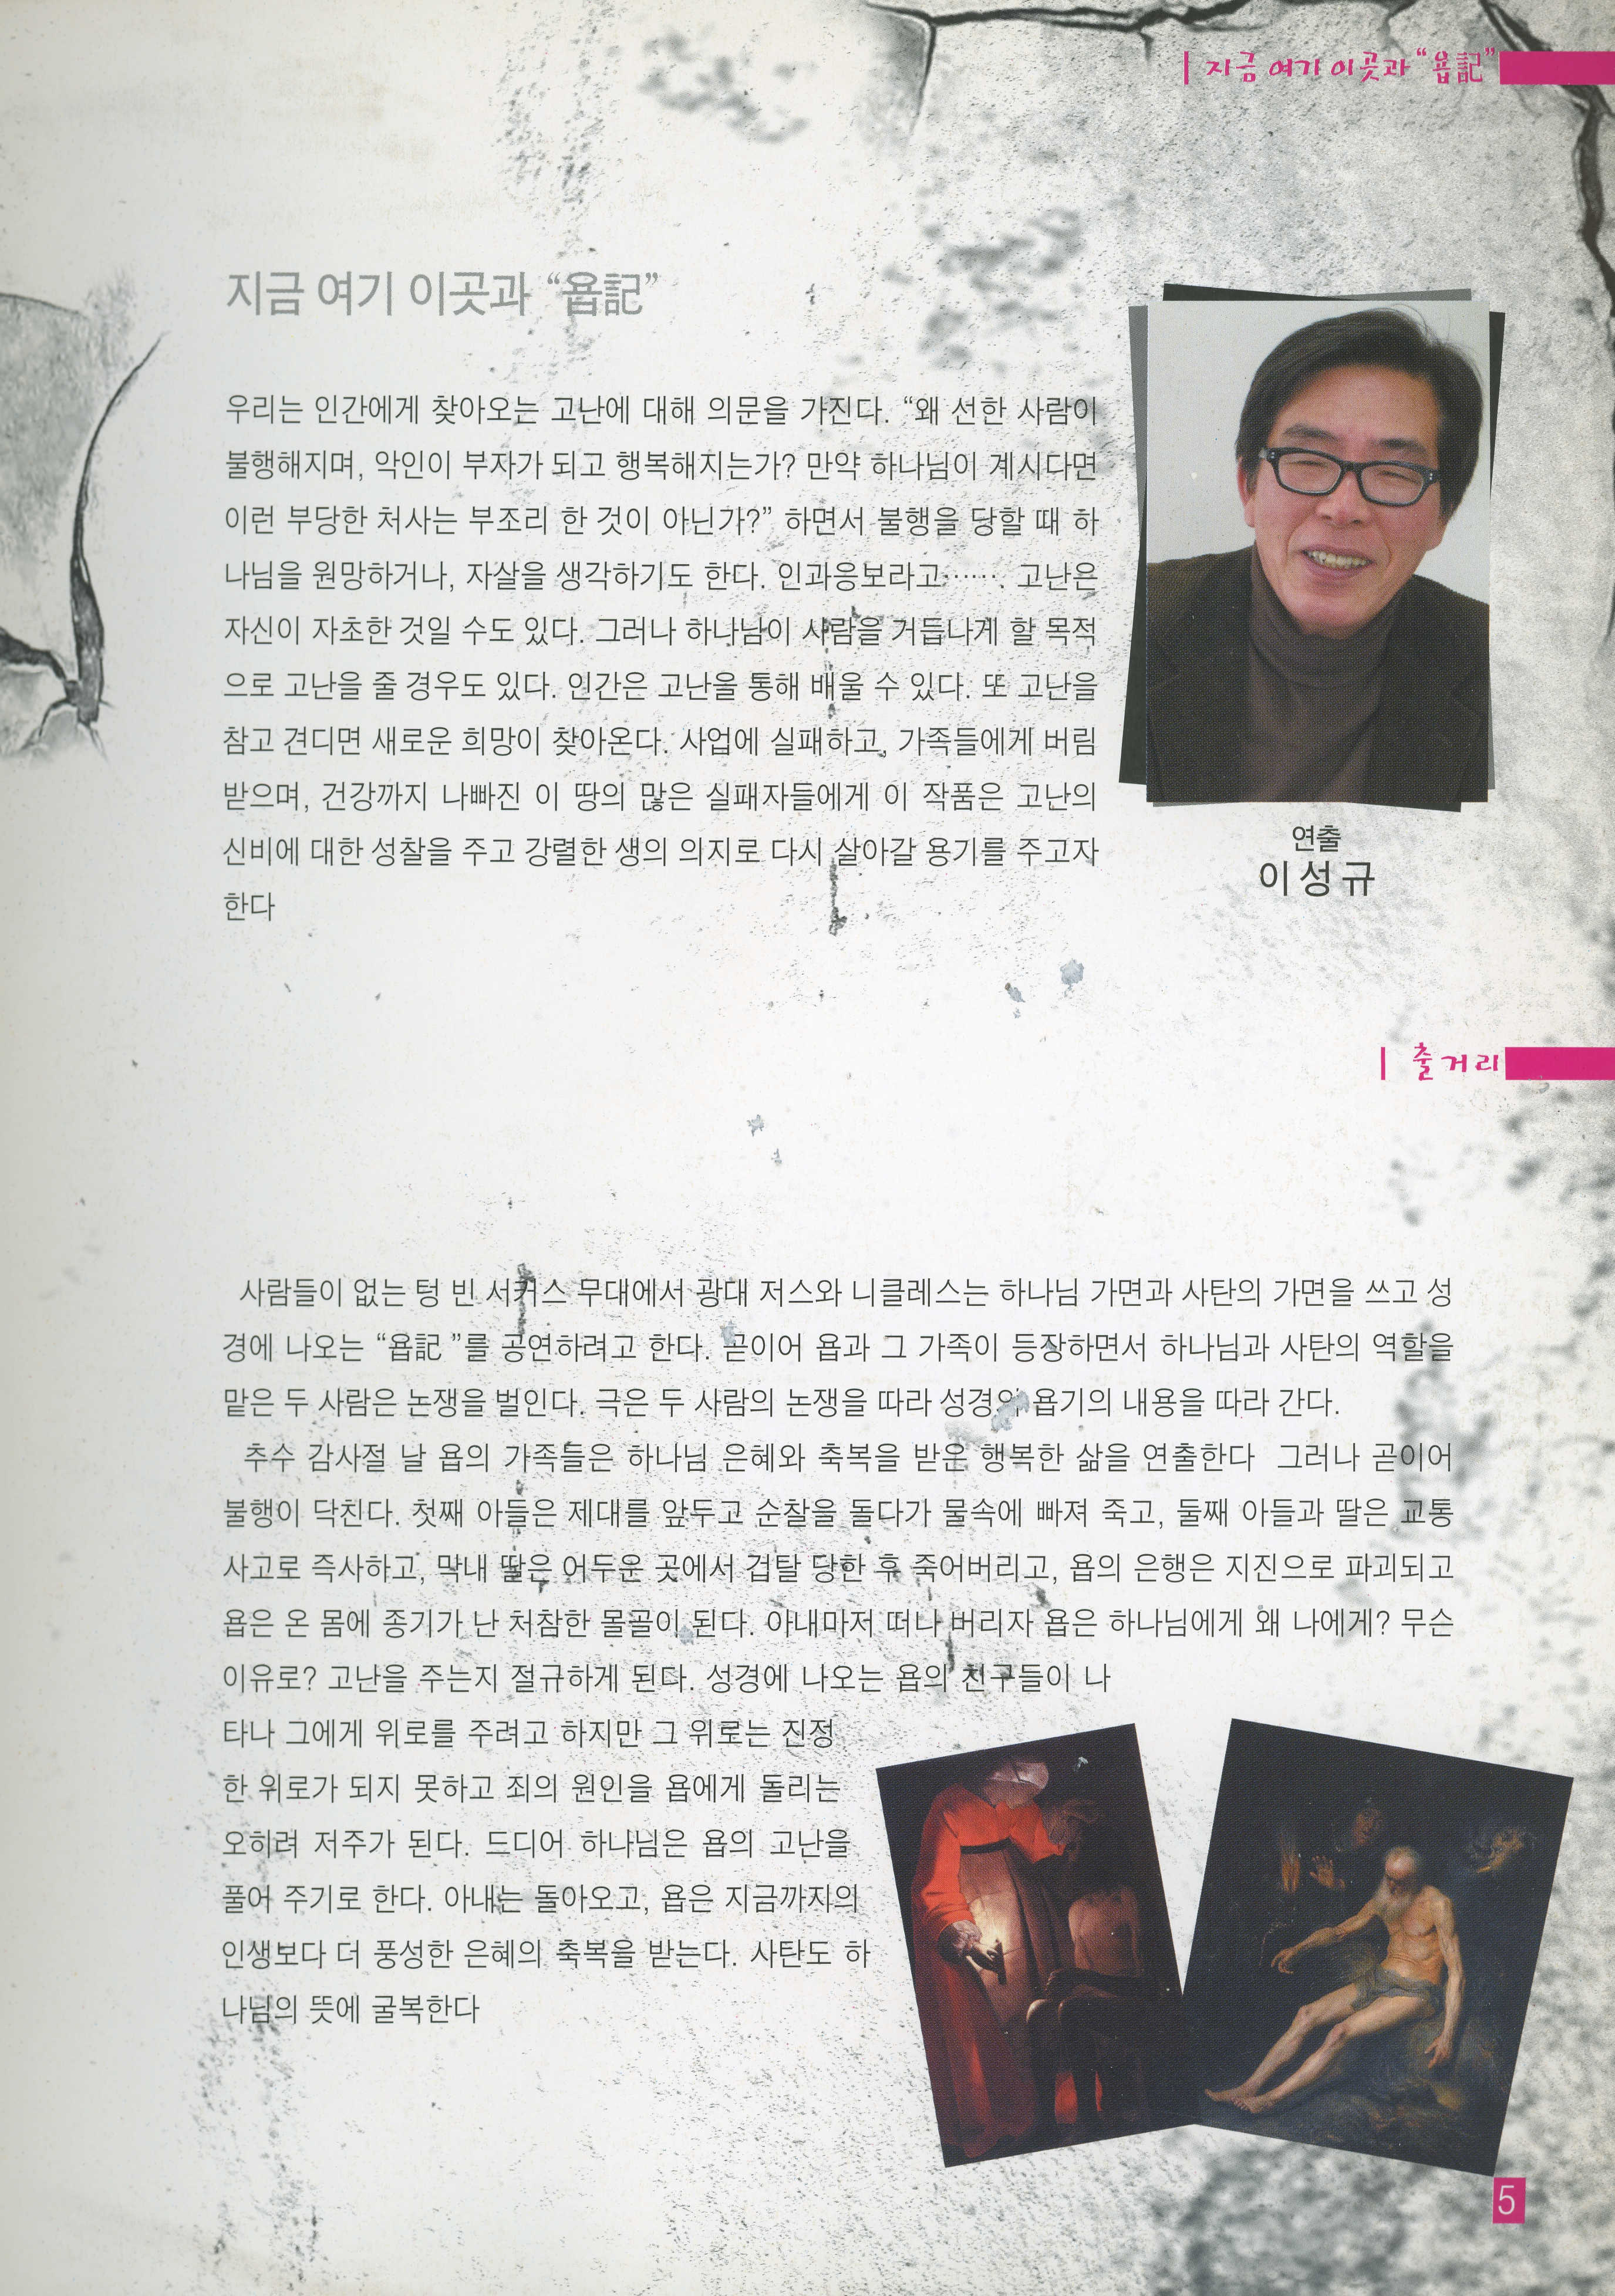 지금 여기 이곳과 “욥記”
지금 여기 이곳과 “욥記”
우리는 인간에게 찾아오는 고난에 대해 의문을 가진다. “왜 선한 사람이
불행해지며, 악인이 부자가 되고 행복해지는가? 만약 하나님이 계시다면
이런 부당한 처사는 부조리 한 것이 아닌가?” 하면서 불행을 당할 때 하
나님을 원망하거나, 자살을 생각하기도 한다. 인과응보라고……. 고난은
자신이 자초한 것일 수도 있다. 그러나 하나님이 사람을 거듭나게 할 목적
으로 고난을 줄 경우도 있다. 인간은 고난을 통해 배울 수 있다. 또 고난을
참고 견디면 새로운 희망이 찾아온다. 사업에 실패하고, 가족들에게 버림
받으며, 건강까지 나빠진 이 땅의 많은 실패자들에게 이 작품은 고난의
신비에 대한 성찰을 주고 강렬한 생의 의지로 다시 살아갈 용기를 주고자
한다
연출
이성규
줄거리
사람들이 없는 텅 빈 서커스 무대에서 광대 저스와 니클레스는 하나님 가면과 사탄의 가면을 쓰고 성
경에 나오는 “욥記 ”를 공연하려고 한다. 곧이어 욥과 그 가족이 등장하면서 하나님과 사탄의 역할을
맡은 두 사람은 논쟁을 벌인다. 극은 두 사람의 논쟁을 따라 성경의 욥기의 내용을 따라 간다.
추수 감사절 날 욥의 가족들은 하나님 은혜와 축복을 받은 행복한 삶을 연출한다 그러나 곧이어
불행이 닥친다. 첫째 아들은 제대를 앞두고 순찰을 돌다가 물속에 빠져 죽고, 둘째 아들과 딸은 교통
사고로 즉사하고, 막내 딸은 어두운 곳에서 겁탈 당한 후 죽어버리고, 욥의 은행은 지진으로 파괴되고
욥은 온 몸에 종기가 난 처참한 몰골이 된다. 아내마저 떠나 버리자 욥은 하나님에게 왜 나에게? 무슨
이유로? 고난을 주는지 절규하게 된다. 성경에 나오는 욥의 친구들이 나
타나 그에게 위로를 주려고 하지만 그 위로는 진정
한 위로가 되지 못하고 죄의 원인을 욥에게 돌리는
오히려 저주가 된다. 드디어 하나님은 욥의 고난을
풀어 주기로 한다. 아내는 돌아오고, 욥은 지금까지의
인생보다 더 풍성한 은혜의 축복을 받는다. 사탄도 하
나님의 뜻에 굴복한다
5